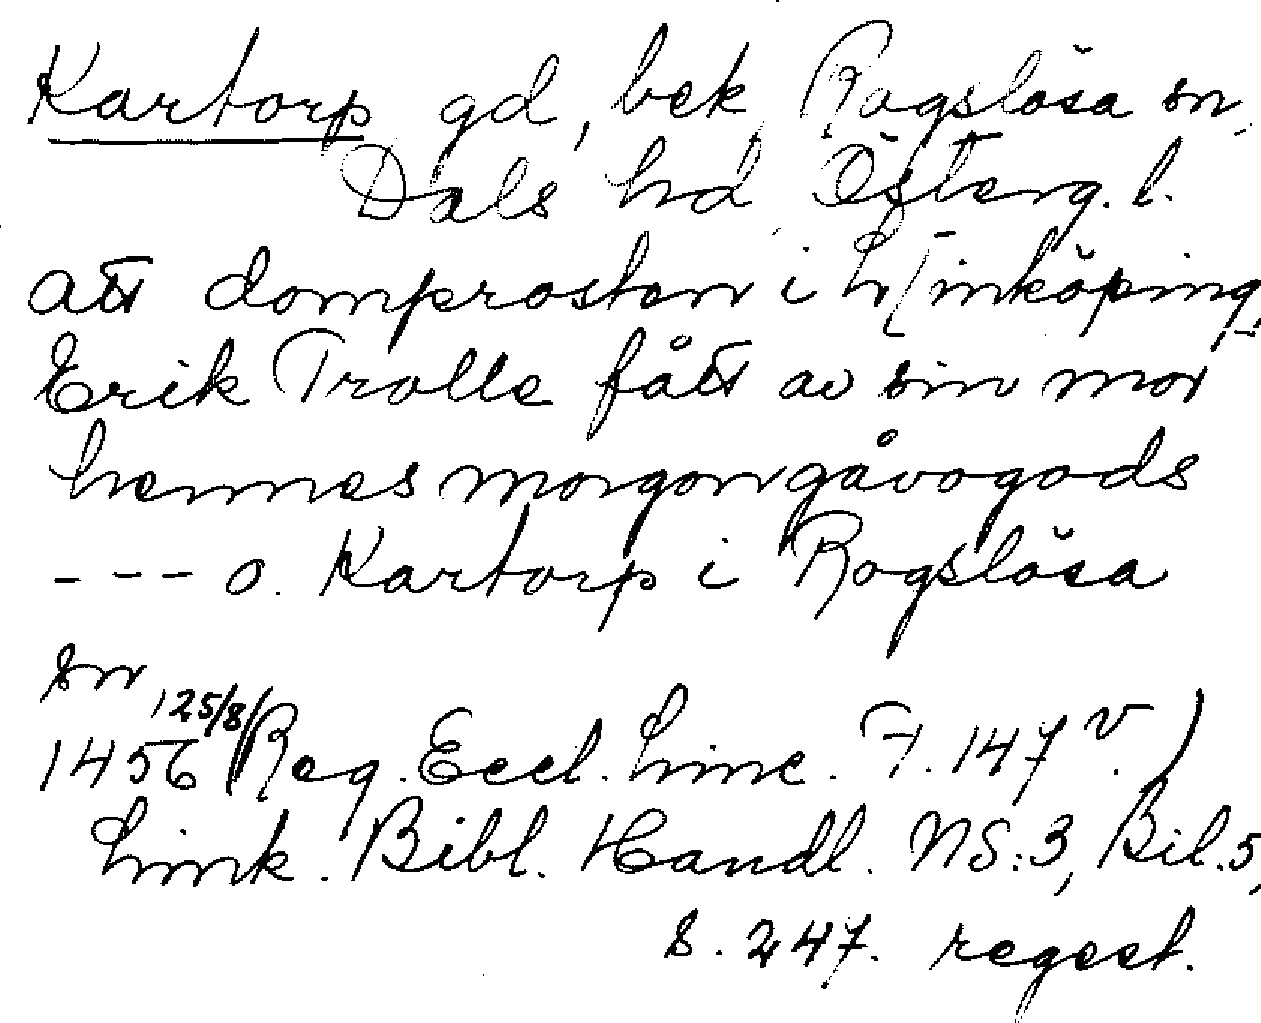 Kartorp gd, bek, Rogslösa sn,
Dals hd Österg. l.
att domprosten i Linköping,
Erik Trolle fått av sin mor
hennes morgongåvogods
--- o. Kartorp i Rogslösa
sn
1456 25/8 (Reg. Eccl. Linc. F. 147 v.)
Link. Bibl. Handl. NS:3, Bil.5,
s. 247. regest.